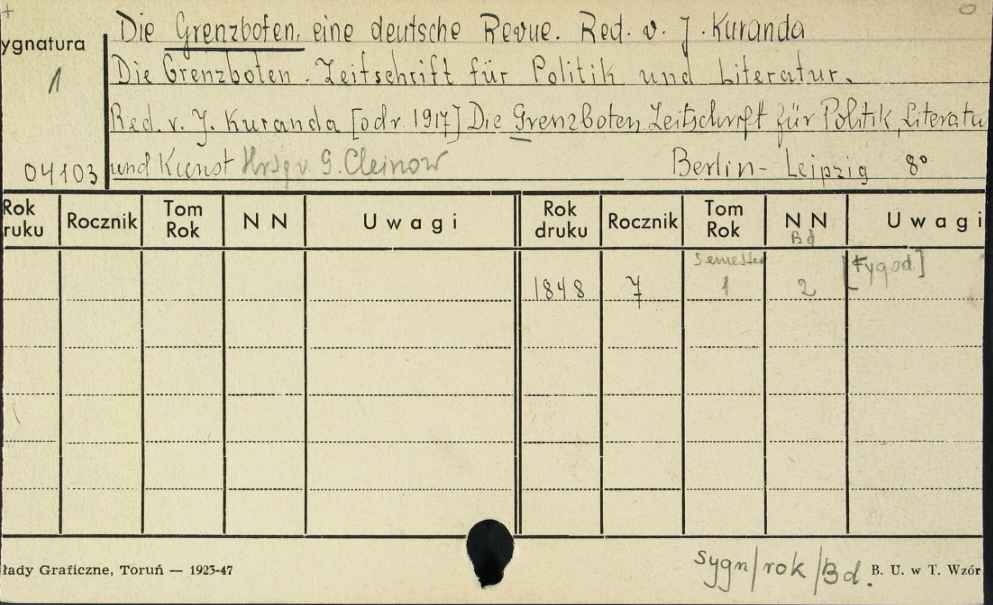 Die Grenzboten, eine deutsche Revue. Red. v. J. Kuranda
ygnatura
1
Die Grenzboten. Zeitschrift für Politik und Literatur.
Red. v. J. Kuranda [odr. 1917] Die Grenzboten, Zeitschrift für Politik, Literatu
04103
und Kunst Hrsg v. G. Cleinow Berlin - Leipzig 8°
Rok ruku Rocznik Tom Rok N N Uwagi Rok druku Rocznik Tom Rok N N Uwagi
Bd
semester [tygod.]
1848 7 1 2
łady Graficzne, Toruń — 1923-47
sygn/rok/Bd.
B. U. w T. Wzór